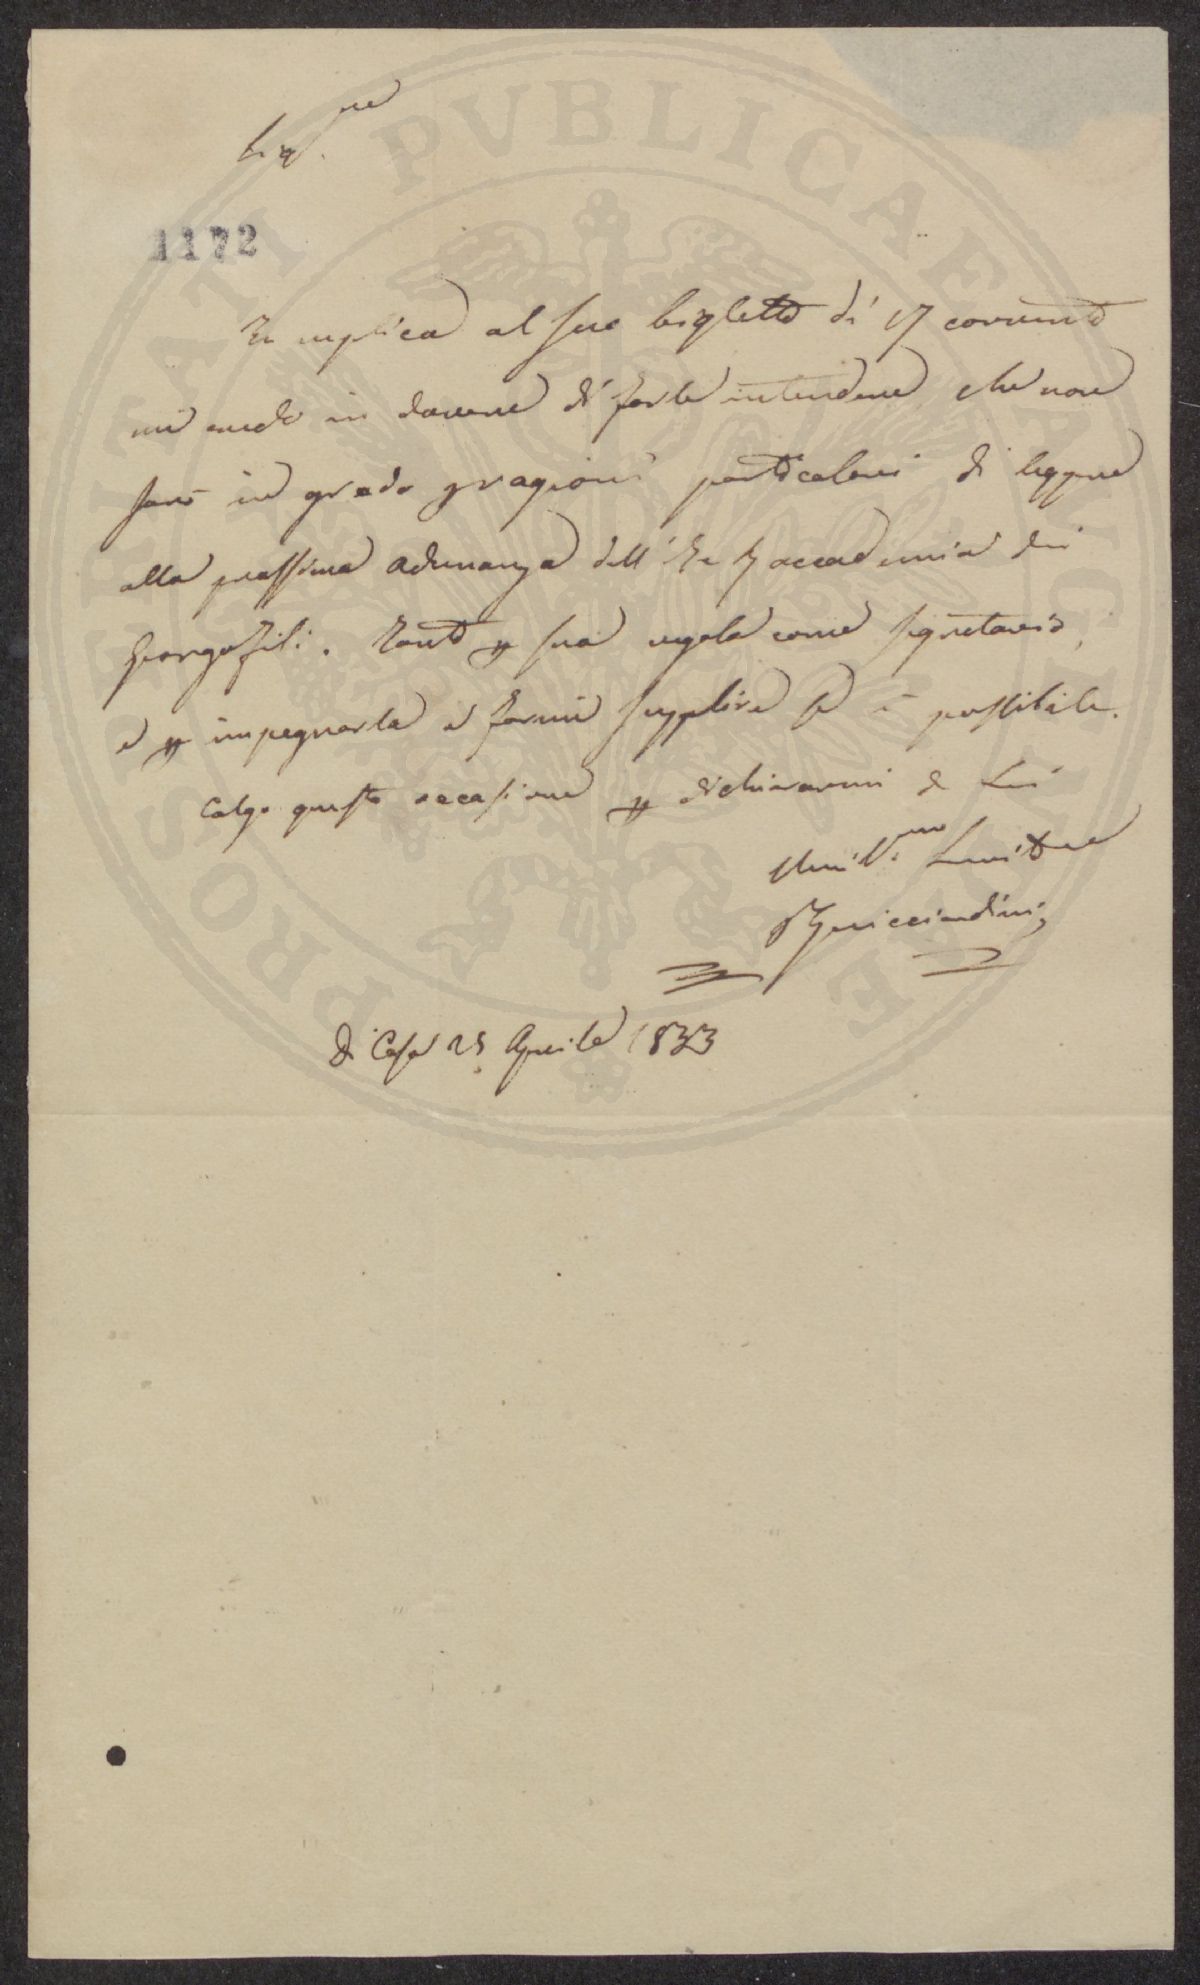 1172
In replica al suo biglietto di 17 corrente
mi credo in dovere di farle intendere che non
sarò in grado p ragioni particolari di leggere
alla prossima adunanza dell' I e R accademia dei
Georgofili. Tanto p sua regola come segretario,
e p impegnarla a farmi supplire se è possibile.
Colgo questa occasione p dichiararmi di Lei
Umil.mo Servitore
Guicciardini
Di Casa 25 Aprile 1833
PROSPERITATI PVBLICAE AVGENDAE